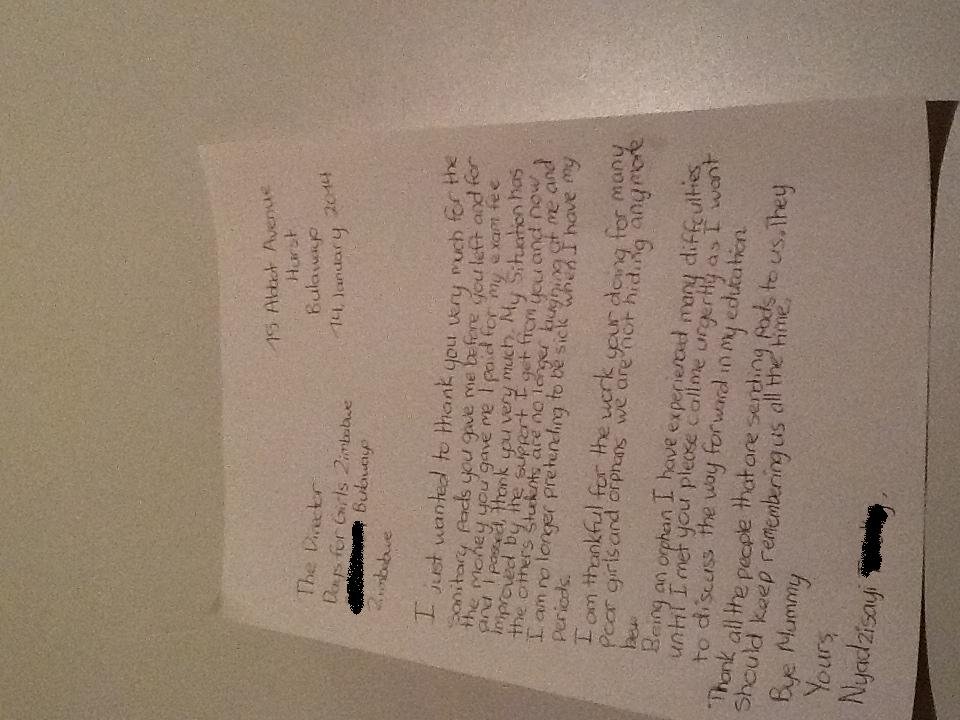 15 Abbot Avenue
Hurst
Bulawayo
14 January 2014
The Director
Days for Girls Zimbabwe
Bulawayo
Zimbabwe
I Just wanted to thank you very much for the
Sanitary Pads you gave me before you left and for
the money you gave me I paid for my exam fee
and I passed, thank you very much. My Situation has
improved by the support I get from you and now
the others students are no longer laughing at me and
I am no longer pretending to be sick when I have my
Periods.
I am thankful for the work your doing for many
Poor girls and orphans we are not hiding anymore
Being an orphan I have experienced many difficulties
until I met you please call me urgently as I want
to discuss the way forward in my education.
Thank all the people that are sending Pads to us. They
Should keep remembering us all the time.
Bye Mummy
Yours,
Nyadzisayi